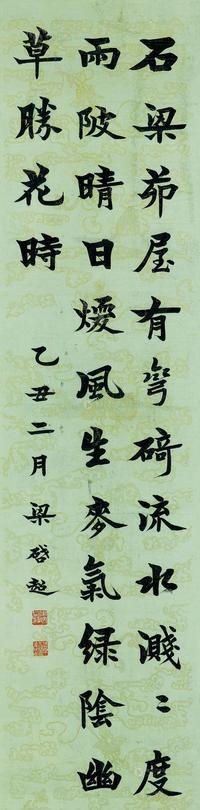 石梁茆屋有彎碕流水濺〻度
兩陂晴日煖風生麥氣緑陰幽
草勝花時
乙丑二月梁啓超